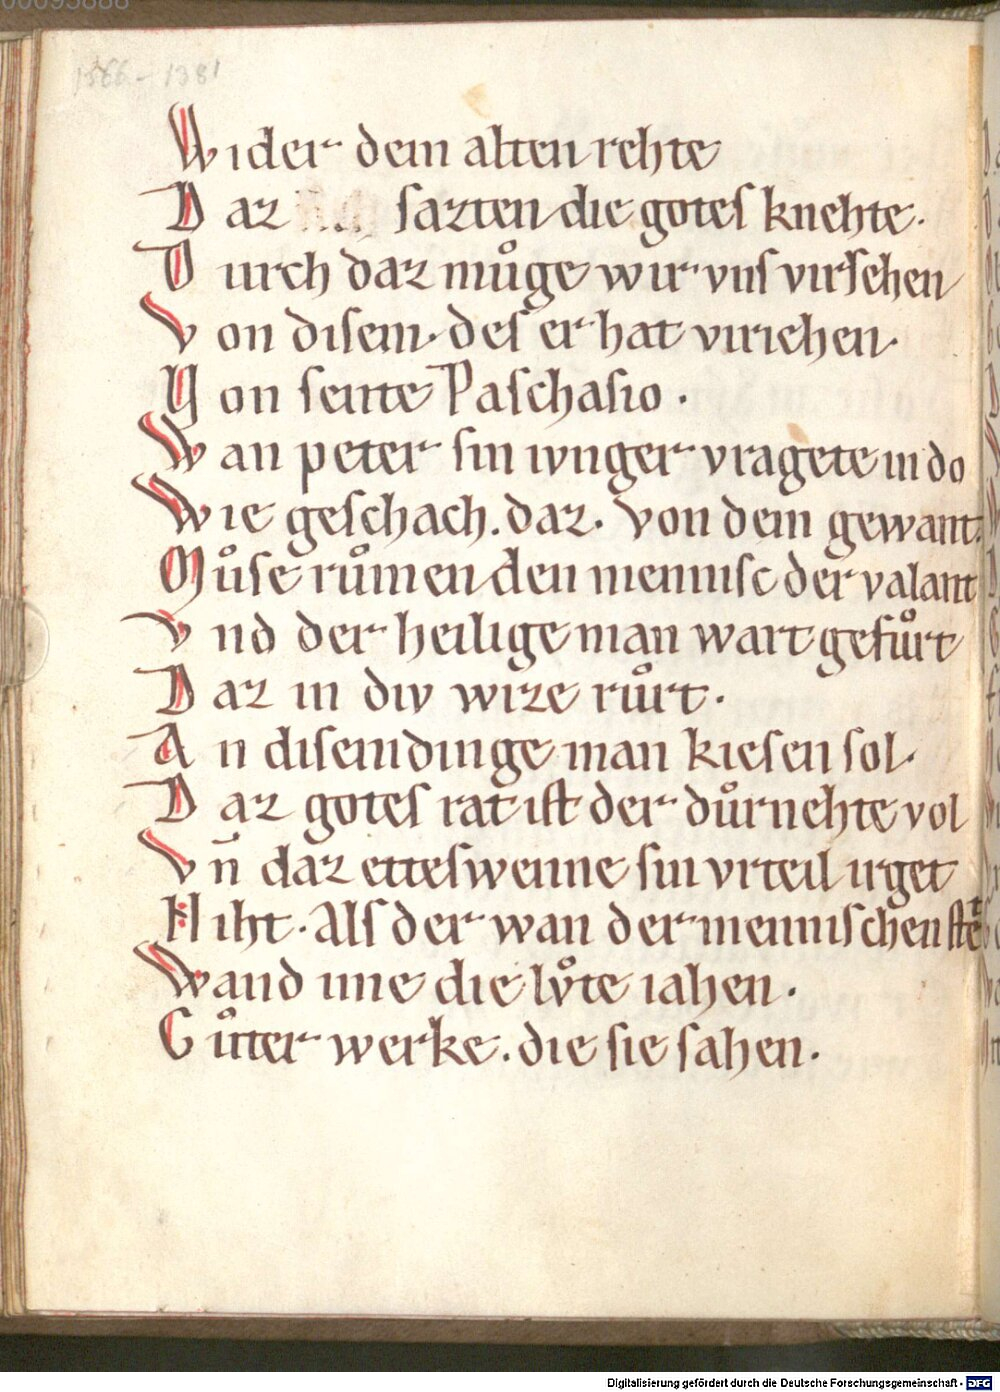 00095888
1366 - 1381
Wider dem alten rehte
Daz sazten die gotes knehte.
Durch daz můge wir vns virsehen
Von disem. des er hat viriehen.
Von sente Paschasio.
Wan peter sin ivnger vragete in do
Wie geschach. daz. von dem gewant.
Můse růmen den mennisc der valant
Vnd der heilige man wart gefůrt
Daz in div wize růrt.
An disem dinge man kiesen sol.
Daz gotes rat ist der důrnehte vol
Vn̄ daz etteswenne sin vrteil irget
Niht. Als der wan der mennischen stet
Wand ime die lv̊te iahen.
Gůter werke. die sie sahen.
Digitalisierung gefördert durch die Deutsche Forschungsgemeinschaft - DFG